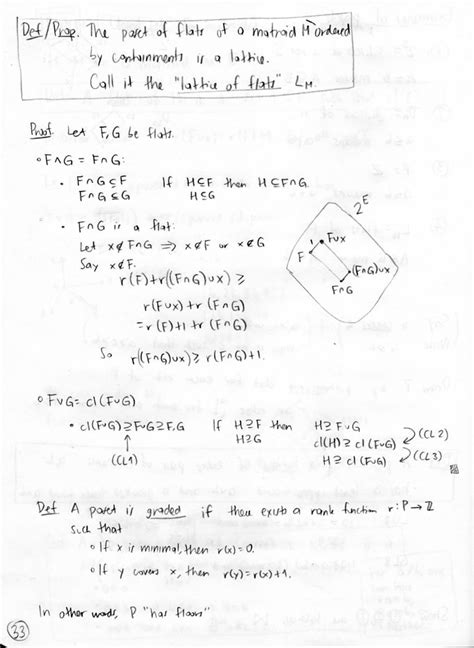 Def/Prop. The poset of flats of a matroid M ordered
by containments is a lattice.
Call it the "lattice of flats" L_M.
Proof. Let F, G be flats.
∘ F∧G = F∩G:
• F∩G ⊆ F If H⊆F then H⊆F∩G.
F∩G ⊆ G H⊆G
• F∩G is a flat:
Let x∉F∩G ⇒ x∉F or x∉G
Say x∉F.
r(F)+r((F∩G)∪x) ≥
r(F∪x)+r(F∩G)
= r(F)+1+r(F∩G)
So r((F∩G)∪x) ≥ r(F∩G)+1.
2^E
F∪x
1
F
(F∩G)∪x
F∩G
∘ F∨G = cl(F∪G)
• cl(F∪G) ⊇ F∪G ⊇ F,G If H⊇F then H⊇F∪G
H⊇G cl(H) ⊇ cl(F∪G) (CL2)
(CL1) H ⊇ cl(F∪G) (CL3)
Def. A poset is graded if there exists a rank function r: P→ℤ
such that
∘ If x is minimal, then r(x)=0.
∘ If y covers x, then r(y)=r(x)+1.
In other words, P "has floors"
33